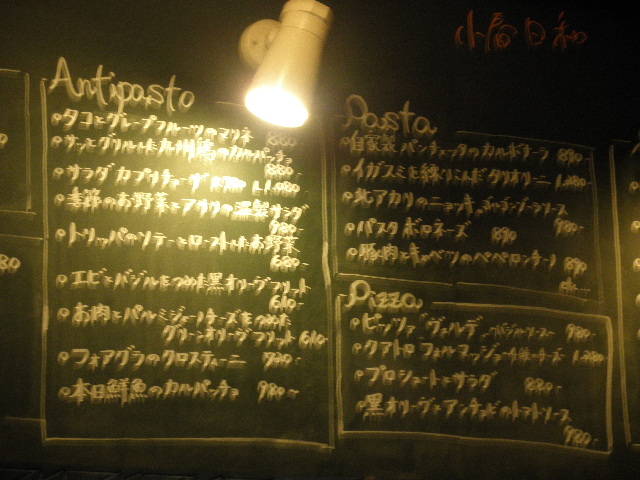 小春日和
Antipasto
タコとグレープフルーツのマリネ 880
九州鶏のカルパッチョ
880-
サラダ カプリチョーザ 1,080
季節のお野菜とアサリの温製サラダ
980-
トリッパのソテーとローストしたお野菜
680-
エビとバジルをつめた黒オリーブフリット
610-
お肉とパルミジャーノチーズをつめた
グリーンオリーブフリット 610-
フォアグラのクロスティーニ 930-
本日鮮魚のカルパッチョ 980-
Pasta
自家製パンチェッタのカルボナーラ 890-
イカスミを練りこんだタリオリーニ 1,280-
北アカリのニョッキ ゴルゴンゾーラソース
980-
パスタ ボロネーズ 890
豚肉とキャベツのペペロンチーノ 890
etc...
Pizza
ピッツァ ヴェルデ バジルソース 980-
クアトロ フォルマッジョ 4種チーズ 1,280
プロシュートとサラダ 880-
黒オリーブとアンチョビのトマトソース
980-
80